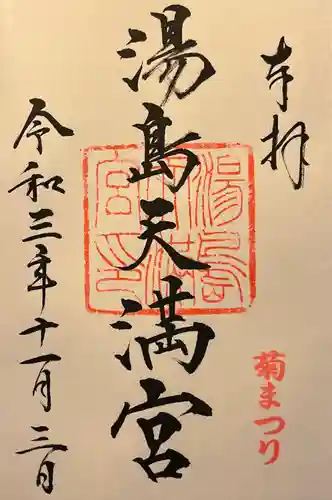 奉拝
湯島天満宮
令和三年十一月三日
菊まつり
湯島天満宮印